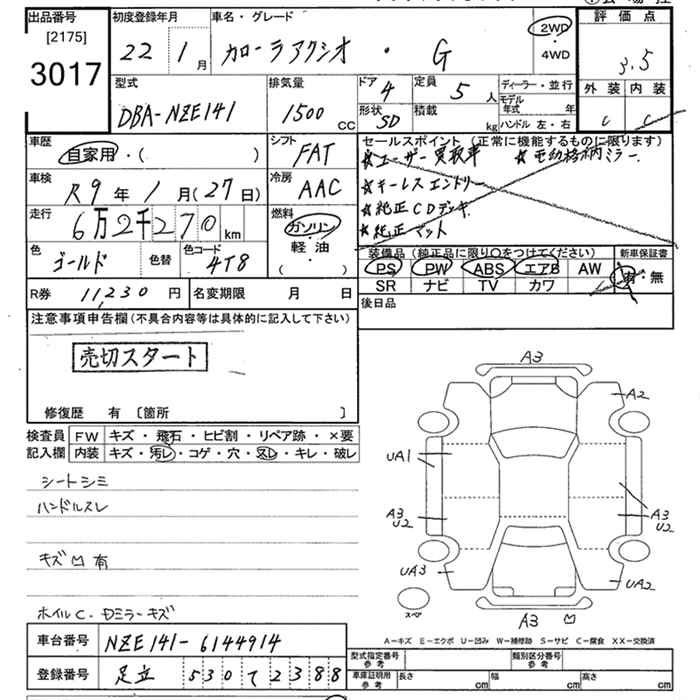 出品番号
[2175]
3017
初度登録年月
22 1月
車名・グレード
カローラアクシオ ・ G
2WD
・
4WD
評価点
3.5
外装 内装
C C
型式
DBA-NZE141
排気量
1500 CC
ドア 4
形状 SD
定員 5 人
積載 kg
ディーラー・並行
モデル年式 年
ハンドル 左・右
車歴
自家用・( )
シフト
FAT
セールスポイント(正常に機能するものに限ります)
☆ユーザー買取車 ☆電動格納ミラー
☆キーレスエントリー
☆純正CDデッキ
☆純正マット
車検
R9年1月(27日)
冷房
AAC
走行
6万2千270 km
燃料
ガソリン
・
軽・油
( )
色
ゴールド
色替
色コード
4T8
装備品(純正品に限り○をつけてください)
新車保証書
PS PW ABS エアB AW
SR ナビ TV カワ
有・無
R券 11230円
名変期限 月 日
後日品
注意事項申告欄(不具合内容等は具体的に記入して下さい)
売切スタート
修復歴 有 [箇所 ]
検査員記入欄
FW キズ・飛石・ヒビ割・リペア跡・×要
内装 キズ・汚レ・コゲ・穴・スレ・キレ・破レ
シートシミ
ハンドルスレ
キズ凹有
ホイルC・Dミラーキズ
A3
A2
UA1
A3
U2
A3
U2
UA3
UA2
スペア
A3 凹
A-キズ E-エクボ U-凹み W-補修跡 S-サビ C-腐食 XX-交換済
車台番号
NZE141-6144914
登録番号
足立 530 て 2388
型式指定番号
参考
類別区分番号
参考
車庫証明用
参考
長さ cm 幅 cm 高さ cm